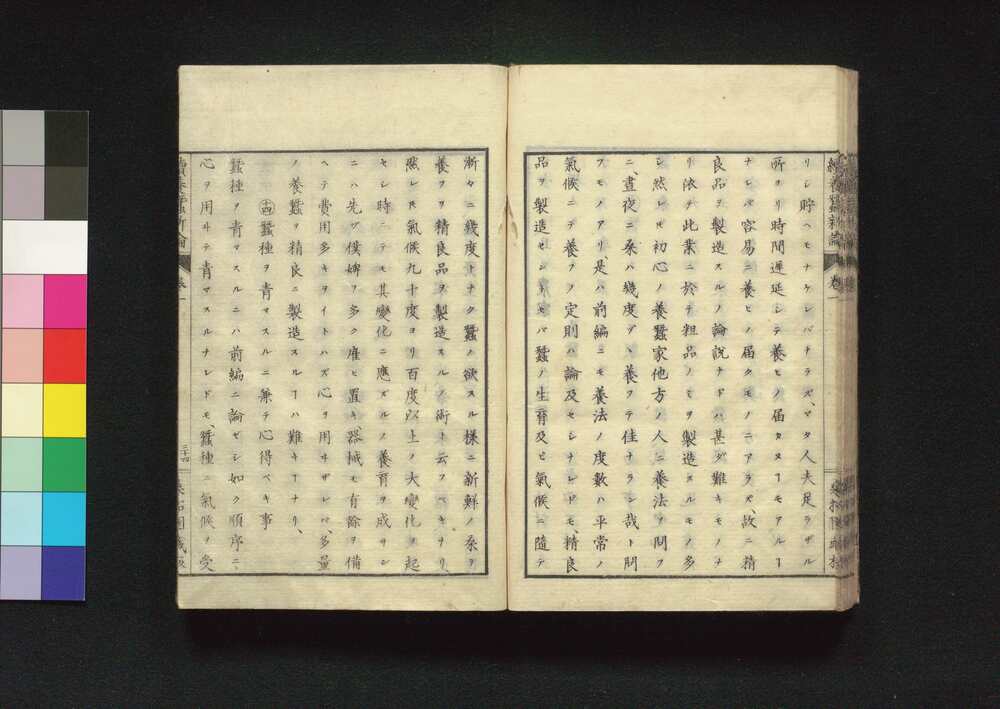 續養蠶新論
卷一
リシ貯ヘモナケレバナラズ、マタ人夫足ラザル
所ヨリ時間遲延シテ養ヒノ届カヌヿモアルヿ
ナレバ容易ニ養ヒノ届クモノニアラズ、故ニ精
良品ヲ製造スルノ論説ナドハ甚ダ難キモノナ
リ依テ此業ニ於テ粗品ノミヲ製造スルモノ多
シ然レ𪜈初心ノ養蠶家他方ノ人ニ養法ヲ問フ
ニ、晝夜ニ桑ハ幾度グヽ養フテ佳ナラン哉ト問
フモノアリ、是ハ前編ニモ養法ノ度數ハ平常ノ
氣候ニテ養フノ定則ハ論及セシナレドモ、精良
品ヲ製造セントセバ蠶ノ生育及ビ氣候ニ隨テ
漸々ニ幾度トナク蠶ノ欲スル樣ニ新鮮ノ桑ヲ
養フヲ精良品ヲ製造スルノ術ト云フベキナリ、
然レ𪜈氣候九十度ヨリ百度以上ノ大變化ヲ起
セシ時ニテモ其變化ニ應ズルノ養育ヲ成サン
ニハ先ヅ僕婢ヲ多ク雇ヒ置キ、器械モ有餘ヲ備
ヘテ費用多キヲイトハズ心ヲ用ヰザレバ、多量
ノ養蠶ヲ精良ニ製造スルヿハ難キヿナリ、
㊉四蠶種ヲ青マスルニ兼テ心得ベキ事
蠶種ヲ青マスルニハ前編ニ論ゼシ如ク順序ニ
心ヲ用ヰテ青マスルナレドモ、蠶種ニ氣候ヲ受
卷一
三十四